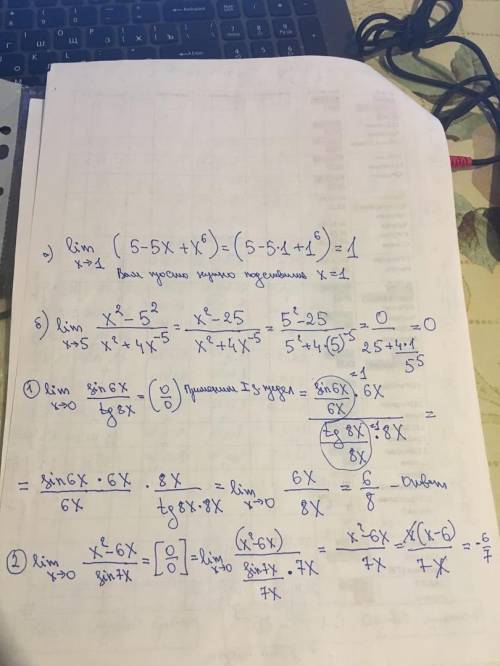 а) lim x→1 (5-5x+x⁶) = (5-5·1+1⁶) = 1
Вам просто нужно подставить x=1
б) lim x→5 (x²-5²)/(x²+4x⁻⁵) = (x²-25)/(x²+4x⁻⁵) = (5²-25)/(5²+4·(5)⁻⁵) = 0/(25+(4·1)/5⁵) = 0
① lim x→0 sin6x/tg8x = (0/0) Применим I з. предел = ((sin6x/6x)=1 · 6x)/((tg8x/8x)=1 · 8x) =
= (sin6x · 6x)/6x · 8x/(tg8x·8x) = lim x→0 6x/8x = 6/8 - Ответ
② lim x→0 (x²-6x)/sin7x = [0/0] = lim x→0 (x²-6x)/((sin7x/7x)·7x) = (x²-6x)/7x = x(x-6)/7x = -6/7